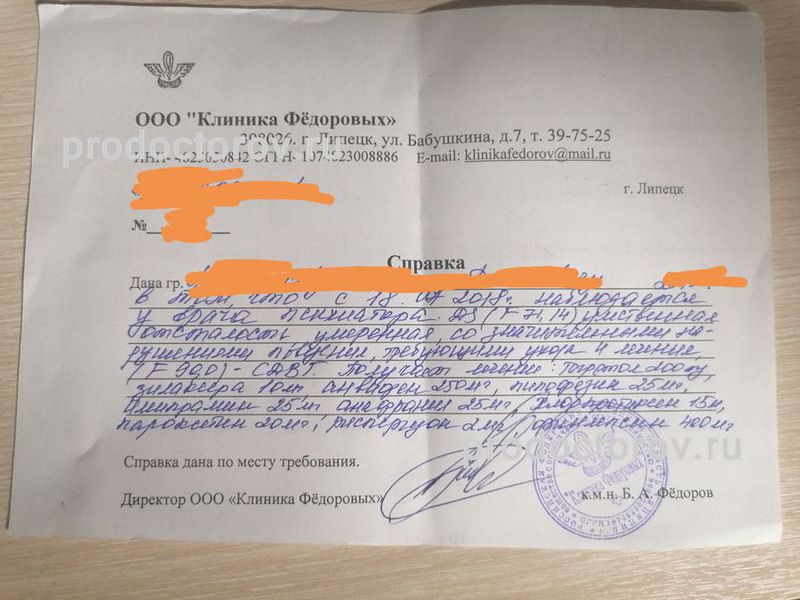 ООО "Клиника Фёдоровых»
398026. г. Липецк, ул. Бабушкина, д.7, т. 39-75-25
prodoctorov.ru
ИНН- 4825050842 ОГРН- 1074823008886 E-mail: klinikafedorov@mail.ru
г. Липецк
№
Справка
Дана гр.
в том, что с 18.07.2018г. наблюдается
у врача психиатра. DS (F 71,14) умственная
отсталость умеренная, со значительными на-
рушениями поведения, требующими ухода и лечения,
(F 90.0) - СДВГ. Получает лечение: 200мг,
зилаксера 10мг, 250мг, пипофезин 25мг.
Имипрамин 25мг анафранил 25мг, хлорпротиксен 15м,
пароксетин 20мг, рисперидон 2мг, финлепсин 400мг
prodoctorov.ru
Справка дана по месту требования.
Директор ООО «Клиника Фёдоровых» к.м.н. Б. А. Фёдоров